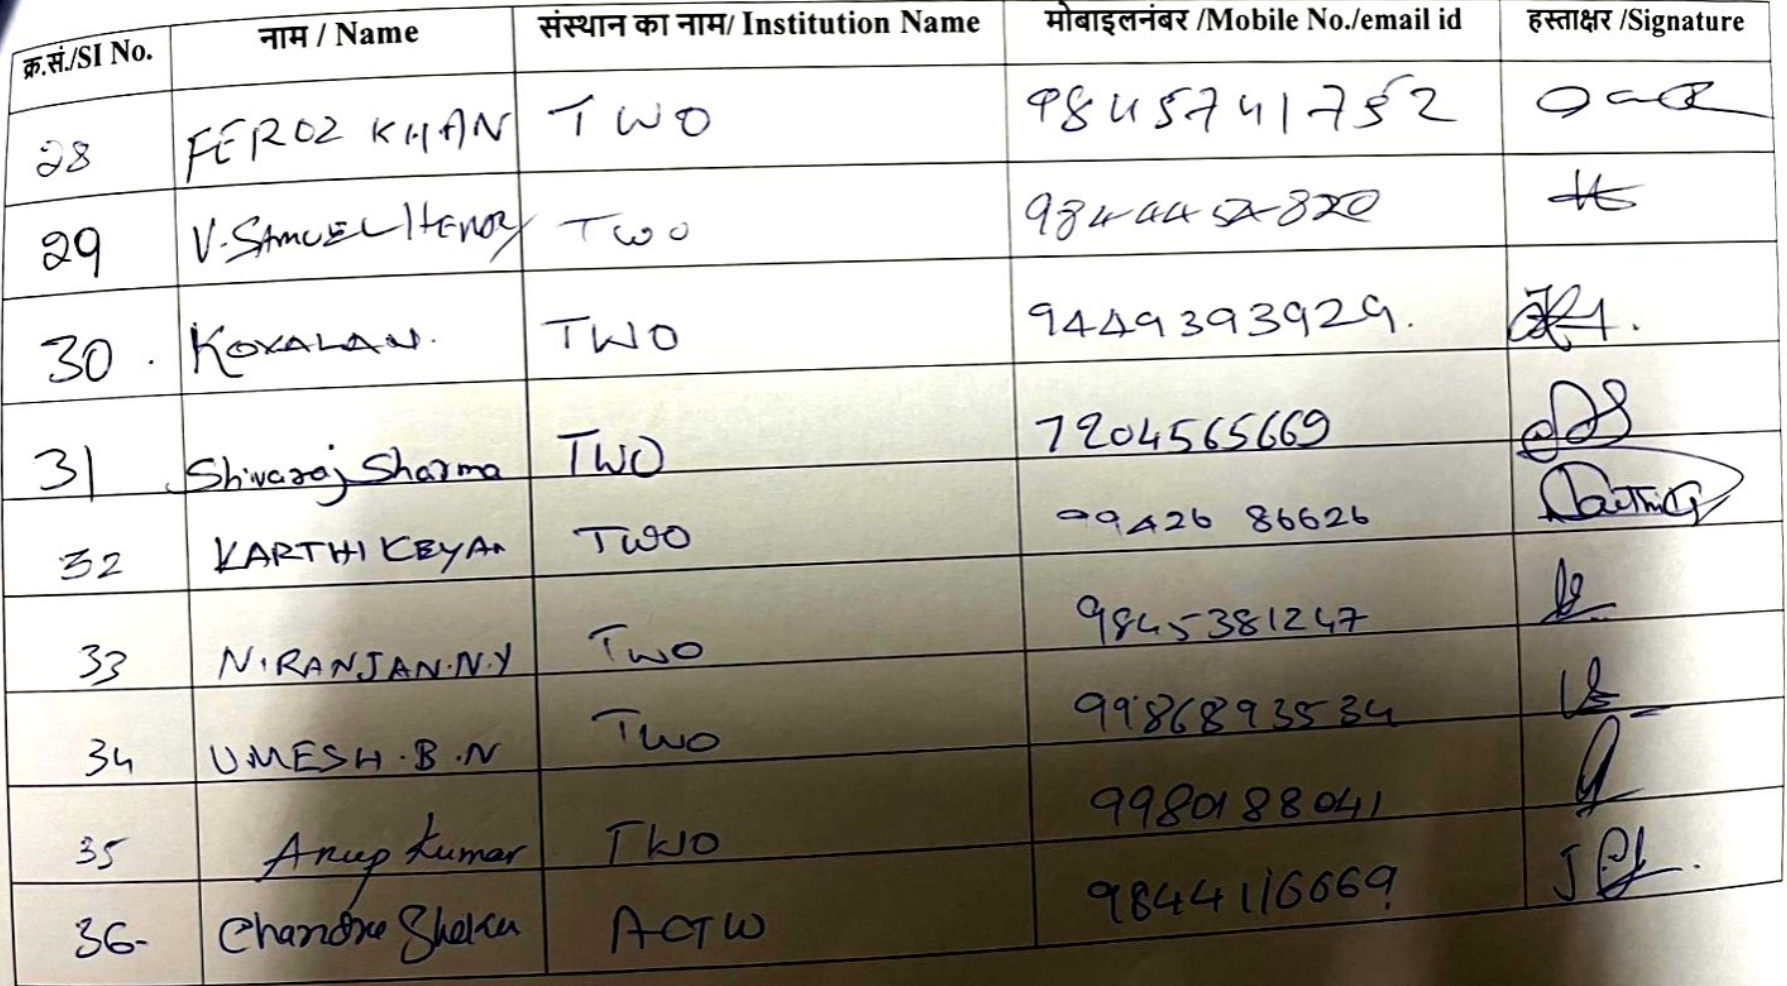 क्र.सं./SI No. नाम / Name संस्थान का नाम/ Institution Name मोबाइलनंबर /Mobile No./email id हस्ताक्षर /Signature
28 FEROZ KHAN TWO 9845741752
29 V. SAMUEL Henry Two
30. KOVALAN. TWO 9449393929.
31 Shivaraj Sharma TWO 7204565669
32 KARTHIKEYAn TWO 99426 86626
33 NIRANJAN.N.Y Two 9845381247
34 UMESH.B.N Two 9986893534
35 Anup Kumar TWO 9980188041
36- Chandra Shekar ACTW 9844116669